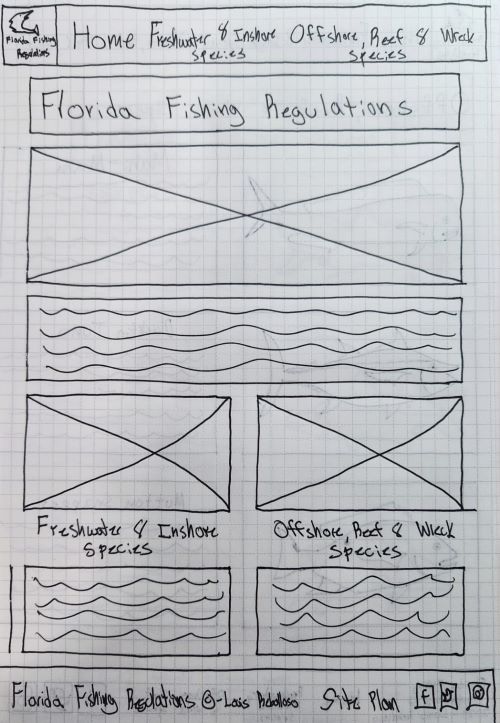 Florida Fishing
Regulations
Home Freshwater & Inshore Species Offshore, Reef & Wreck Species
Florida Fishing Regulations
Freshwater & Inshore
Species
Offshore, Reef & Wreck
Species
Florida Fishing Regulations © - Site Plan f